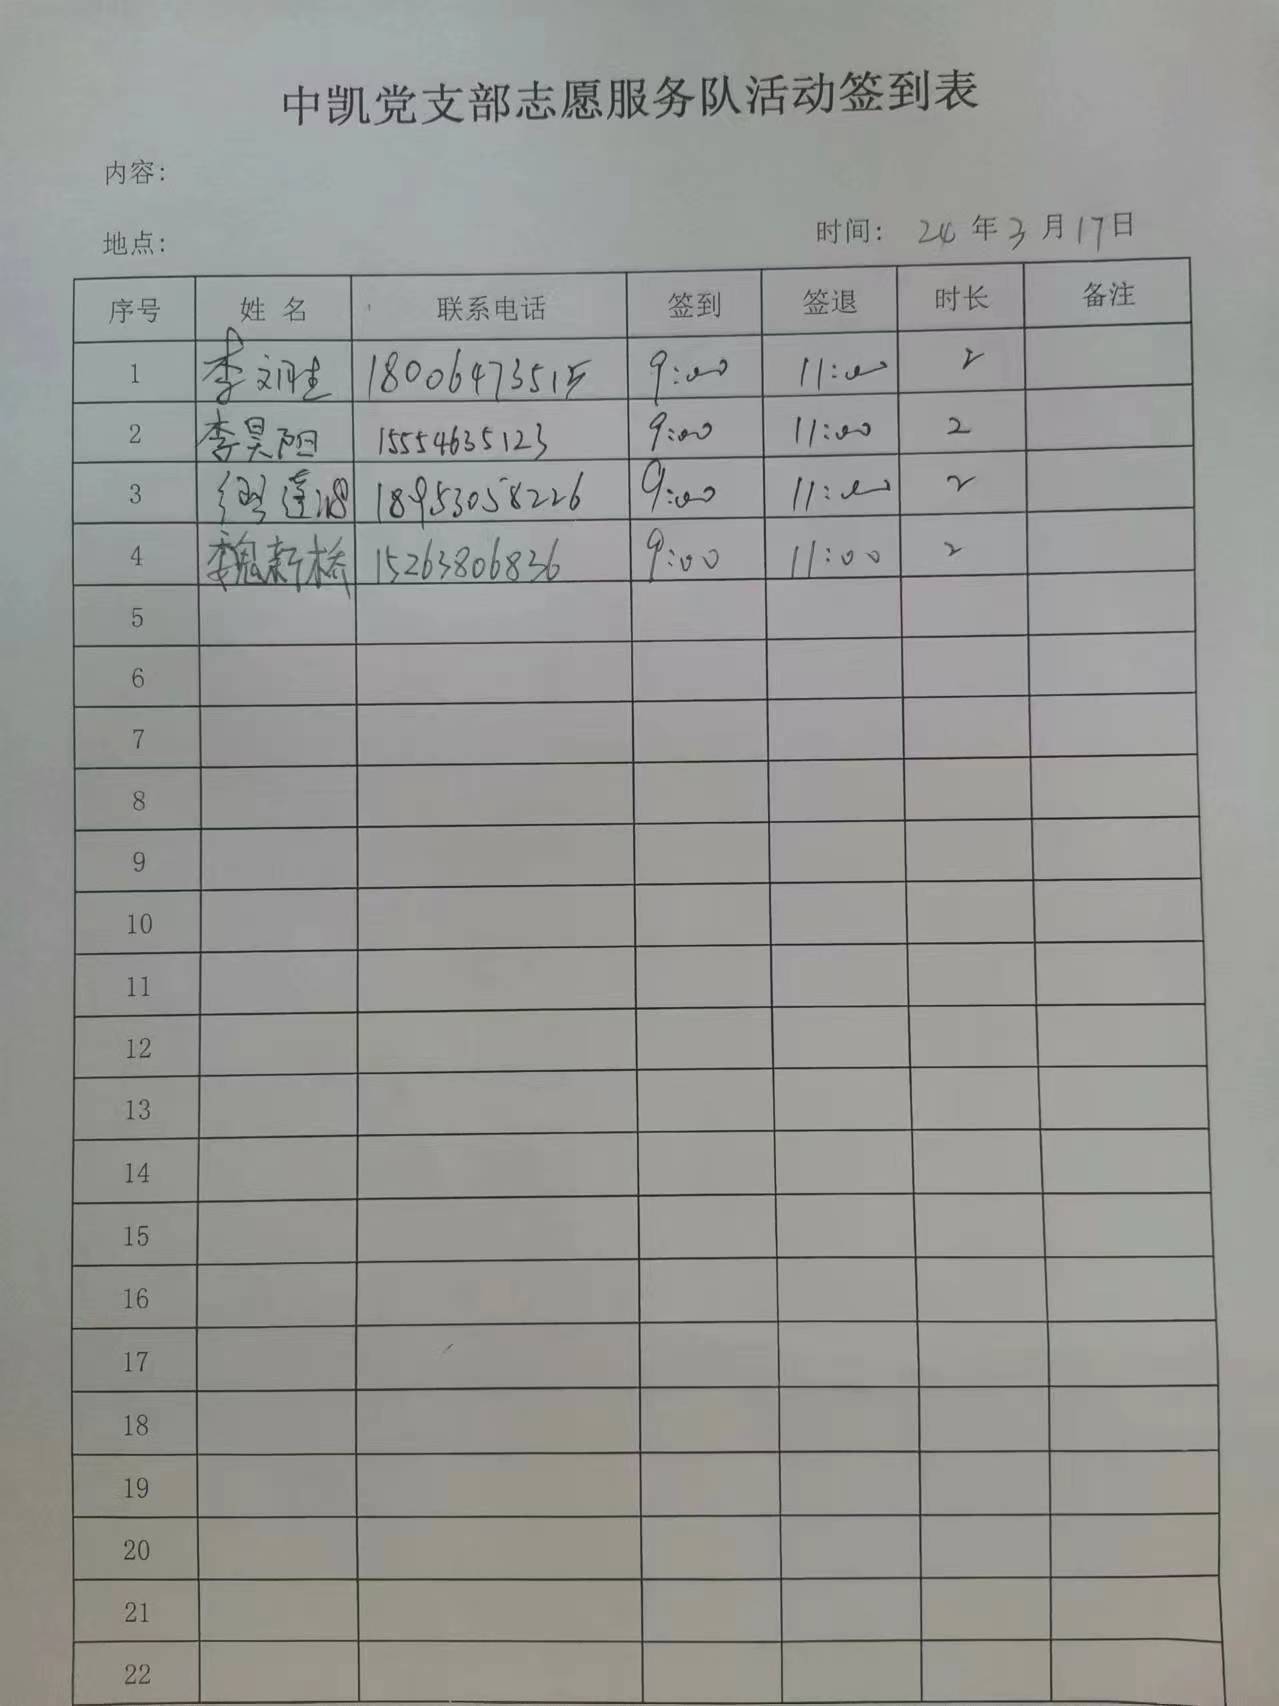 中凯党支部志愿服务队活动签到表
内容:
地点:
时间: 24年3月17日
序号 姓名 联系电话 签到 签退 时长 备注
1 李 18006473515 9:00 11:00 2
2 李昊阳 15554635123 9:00 11:00 2
3 18953058226 9:00 11:00 2
4 魏新桥 15263806836 9:00 11:00 2
5
6
7
8
9
10
11
12
13
14
15
16
17
18
19
20
21
22